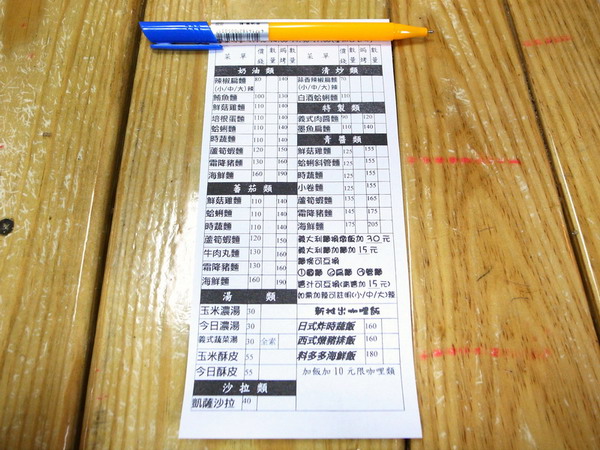 菜 單 價錢 數量 焗烤 數量
奶油類
辣椒扁麵 80 140
(小/中/大)辣
鮪魚麵 100 130
鮮菇雞麵 110 140
培根蛋麵 110 140
蛤蜊麵 110 140
時蔬麵 110 140
蘆筍蝦麵 120 150
霜降豬麵 130 160
海鮮麵 160 190
蕃茄類
鮮菇雞麵 110 140
蛤蜊麵 110 140
時蔬麵 110 140
蘆筍蝦麵 120 150
牛肉丸麵 130 160
霜降豬麵 130 160
海鮮麵 160 190
湯 類
玉米濃湯 30
今日濃湯 30
義式蔬菜湯 30 全素
玉米酥皮 55
今日酥皮 55
沙拉類
凱薩沙拉 40
菜 單 價錢 數量 焗烤 數量
清炒類
蒜香辣椒扁麵 70
(小/中/大)辣
白酒蛤蜊麵 110
特製類
義式肉醬麵 90 120
墨魚扁麵 110 140
青醬類
鮮菇雞麵 125 155
蛤蜊斜管麵 125 155
時蔬麵 125 155
小卷麵 125 155
蘆筍蝦麵 135 165
霜降豬麵 145 175
海鮮麵 175 205
義大利麵焗烤飯加30元
義大利麵加麵加15元
麵條可互換
①圓麵 ②扁麵 ③管麵
醬汁可互換(青醬加15元)
如需加辣可註明(小/中/大)辣
新推出咖哩飯
日式炸時蔬飯 160
西式燉豬排飯 160
料多多海鮮飯 180
加飯加10元限咖哩類